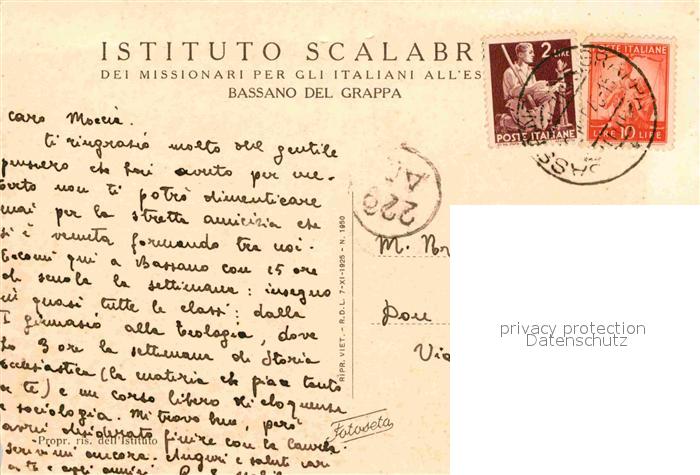 ISTITUTO SCALABR
DEI MISSIONARI PER GLI ITALIANI ALL'ES
BASSANO DEL GRAPPA
2 LIRE
POSTE ITALIANE
POSTE ITALIANE
LIRE 10 LIRE
229
caro Moccia.
ti ringrazio molto del gentile
pensiero che hai avuto per me.
Certo non ti potrò dimenticare
mai per la stretta amicizia che
si è venuta formando tra noi.
Eccomi qui a Bassano con 15 ore
di scuola la settimana: insegno
in quasi tutte le classi: dalla
I ginnasio alla teologia, dove
ho 3 ore la settimana di Storia
ecclesiastica (la materia che piace tanto
a te) e un corso libero di eloquenza
e sociologia. Mi trovo bene, però
avrei desiderato finire con la laurea.
scrivimi ancora. Auguri e saluti cari
a te e agli amici.
Propr. ris. dell'Istituto
RIPR. VIET. - R.D.L. 7-XI-1925 - N. 1950
Fotoseta
M.
Don
Via
privacy protection
Datenschutz